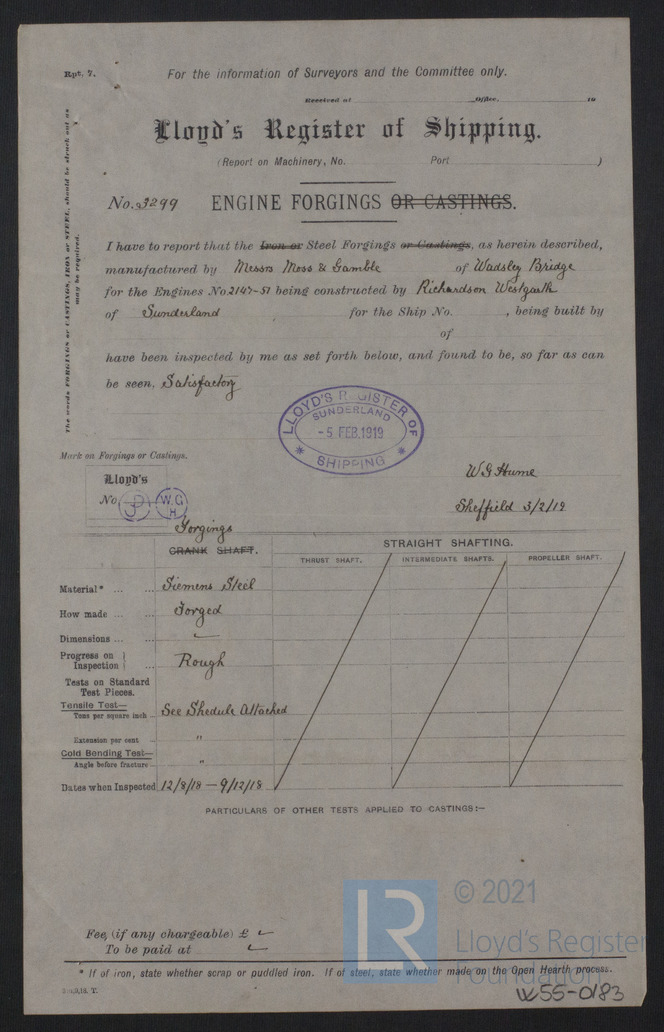 Rpt. 7.
For the information of Surveyors and the Committee only.
Received at Office, 19
Lloyd's Register of Shipping.
(Report on Machinery, No. Port )
No. 3299 ENGINE FORGINGS OR CASTINGS.
The words FORGINGS or CASTINGS, IRON or STEEL, should be struck out as
may be required.
I have to report that the Iron or Steel Forgings or Castings, as herein described,
manufactured by Messrs Moss & Gamble of Wadsley Bridge
for the Engines No. 2147-51 being constructed by Richardson Westgarth
of Sunderland for the Ship No. , being built by
of
have been inspected by me as set forth below, and found to be, so far as can
be seen, Satisfactory
LLOYD'S REGISTER OF
SUNDERLAND
-5 FEB. 1919
SHIPPING
Mark on Forgings or Castings.
Lloyd's
No
W.G
H
W G Hume
Sheffield 3/2/19
Forgings
CRANK SHAFT.
STRAIGHT SHAFTING.
THRUST SHAFT. INTERMEDIATE SHAFTS. PROPELLER SHAFT.
Material* ... ... Siemens Steel
How made ... ... Forged
Dimensions ... ...
Progress on
Inspection } ... Rough
Tests on Standard
Test Pieces.
Tensile Test—
Tons per square inch .. See Shedule Attached
Extension per cent "
Cold Bending Test—
Angle before fracture "
Dates when Inspected 12/8/18 — 9/12/18
PARTICULARS OF OTHER TESTS APPLIED TO CASTINGS:—
Fee, (if any chargeable) £
To be paid at
* If of iron, state whether scrap or puddled iron. If of steel, state whether made on the Open Hearth process.
LR
© 2021
Lloyd's Register
Foundation
W55-0183